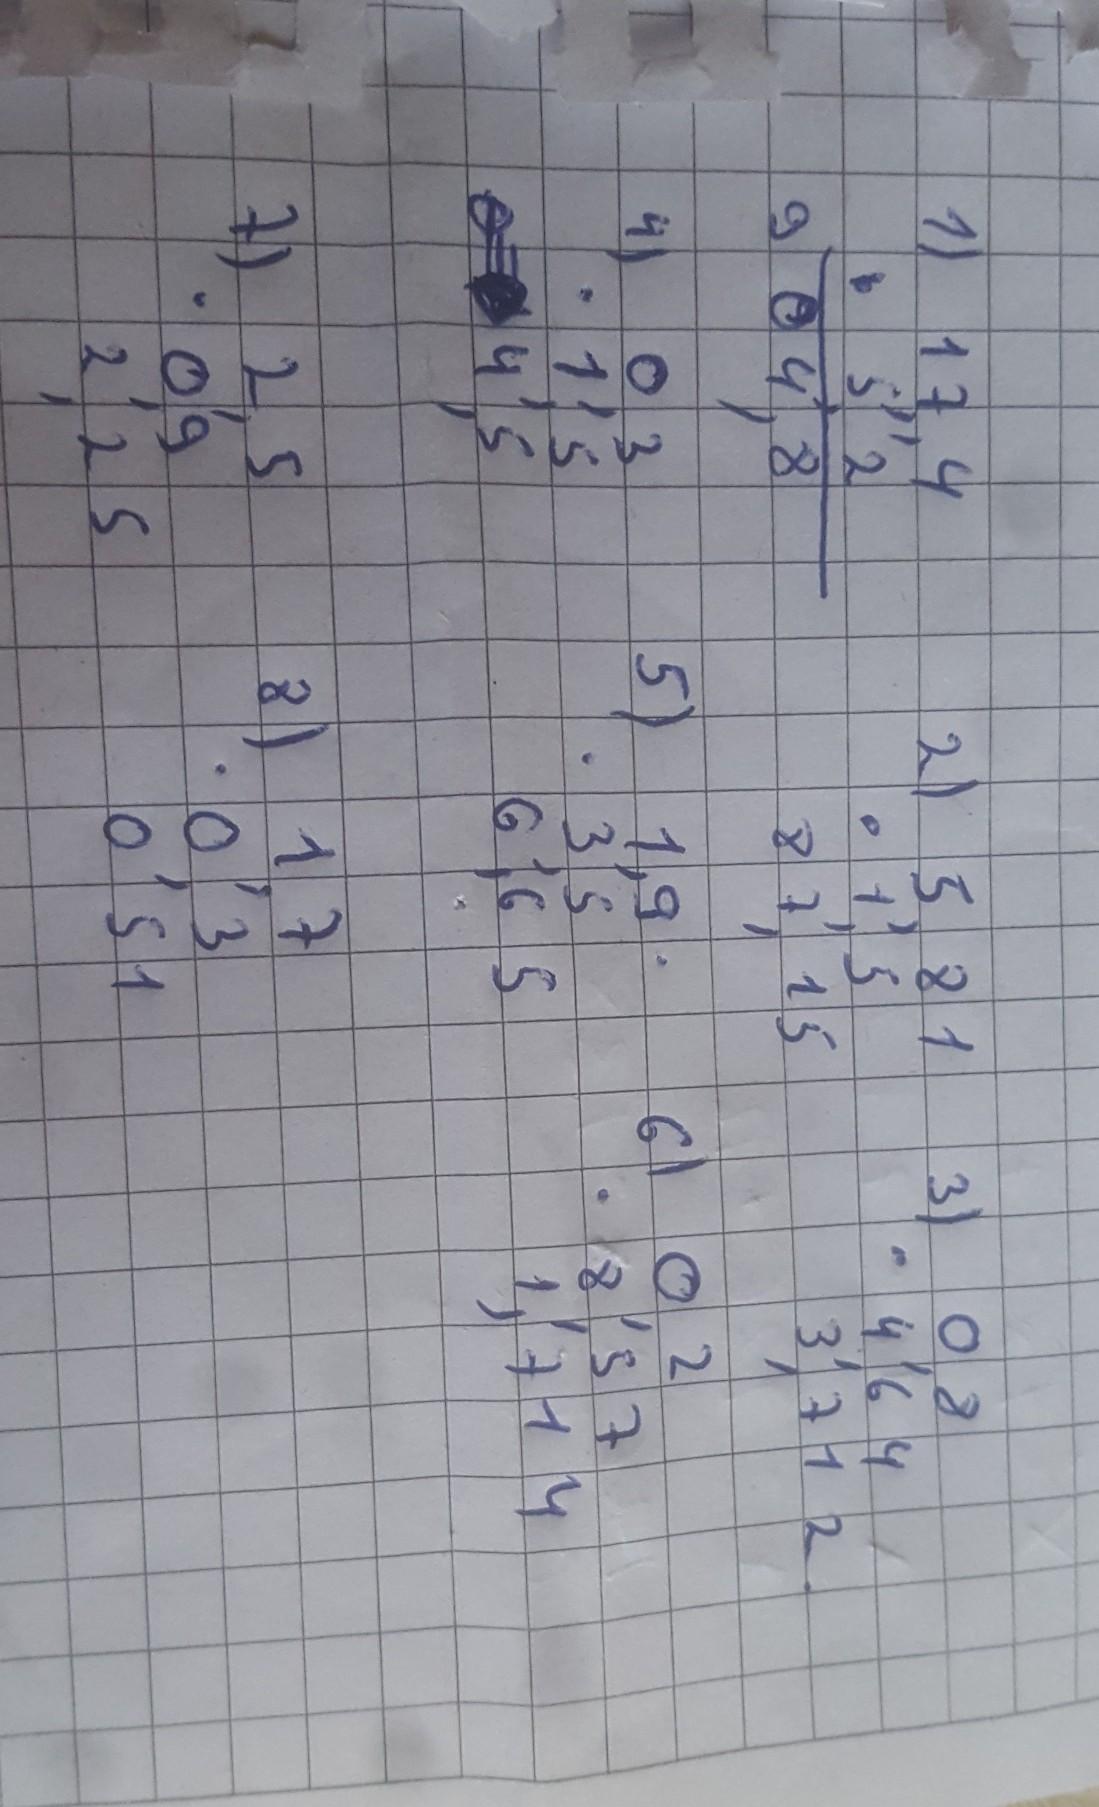 1) 17,4 2) 5,81 3) 0,8
· 5,2 · 1,5 · 4,64
904,8 87,15 3,712
4) 0,3 5) 1,9 6) 0,2
· 1,5 · 3,5 · 8,57
4,5 6,65 1,714
7) 2,5 8) 1,7
· 0,9 · 0,3
2,25 0,51